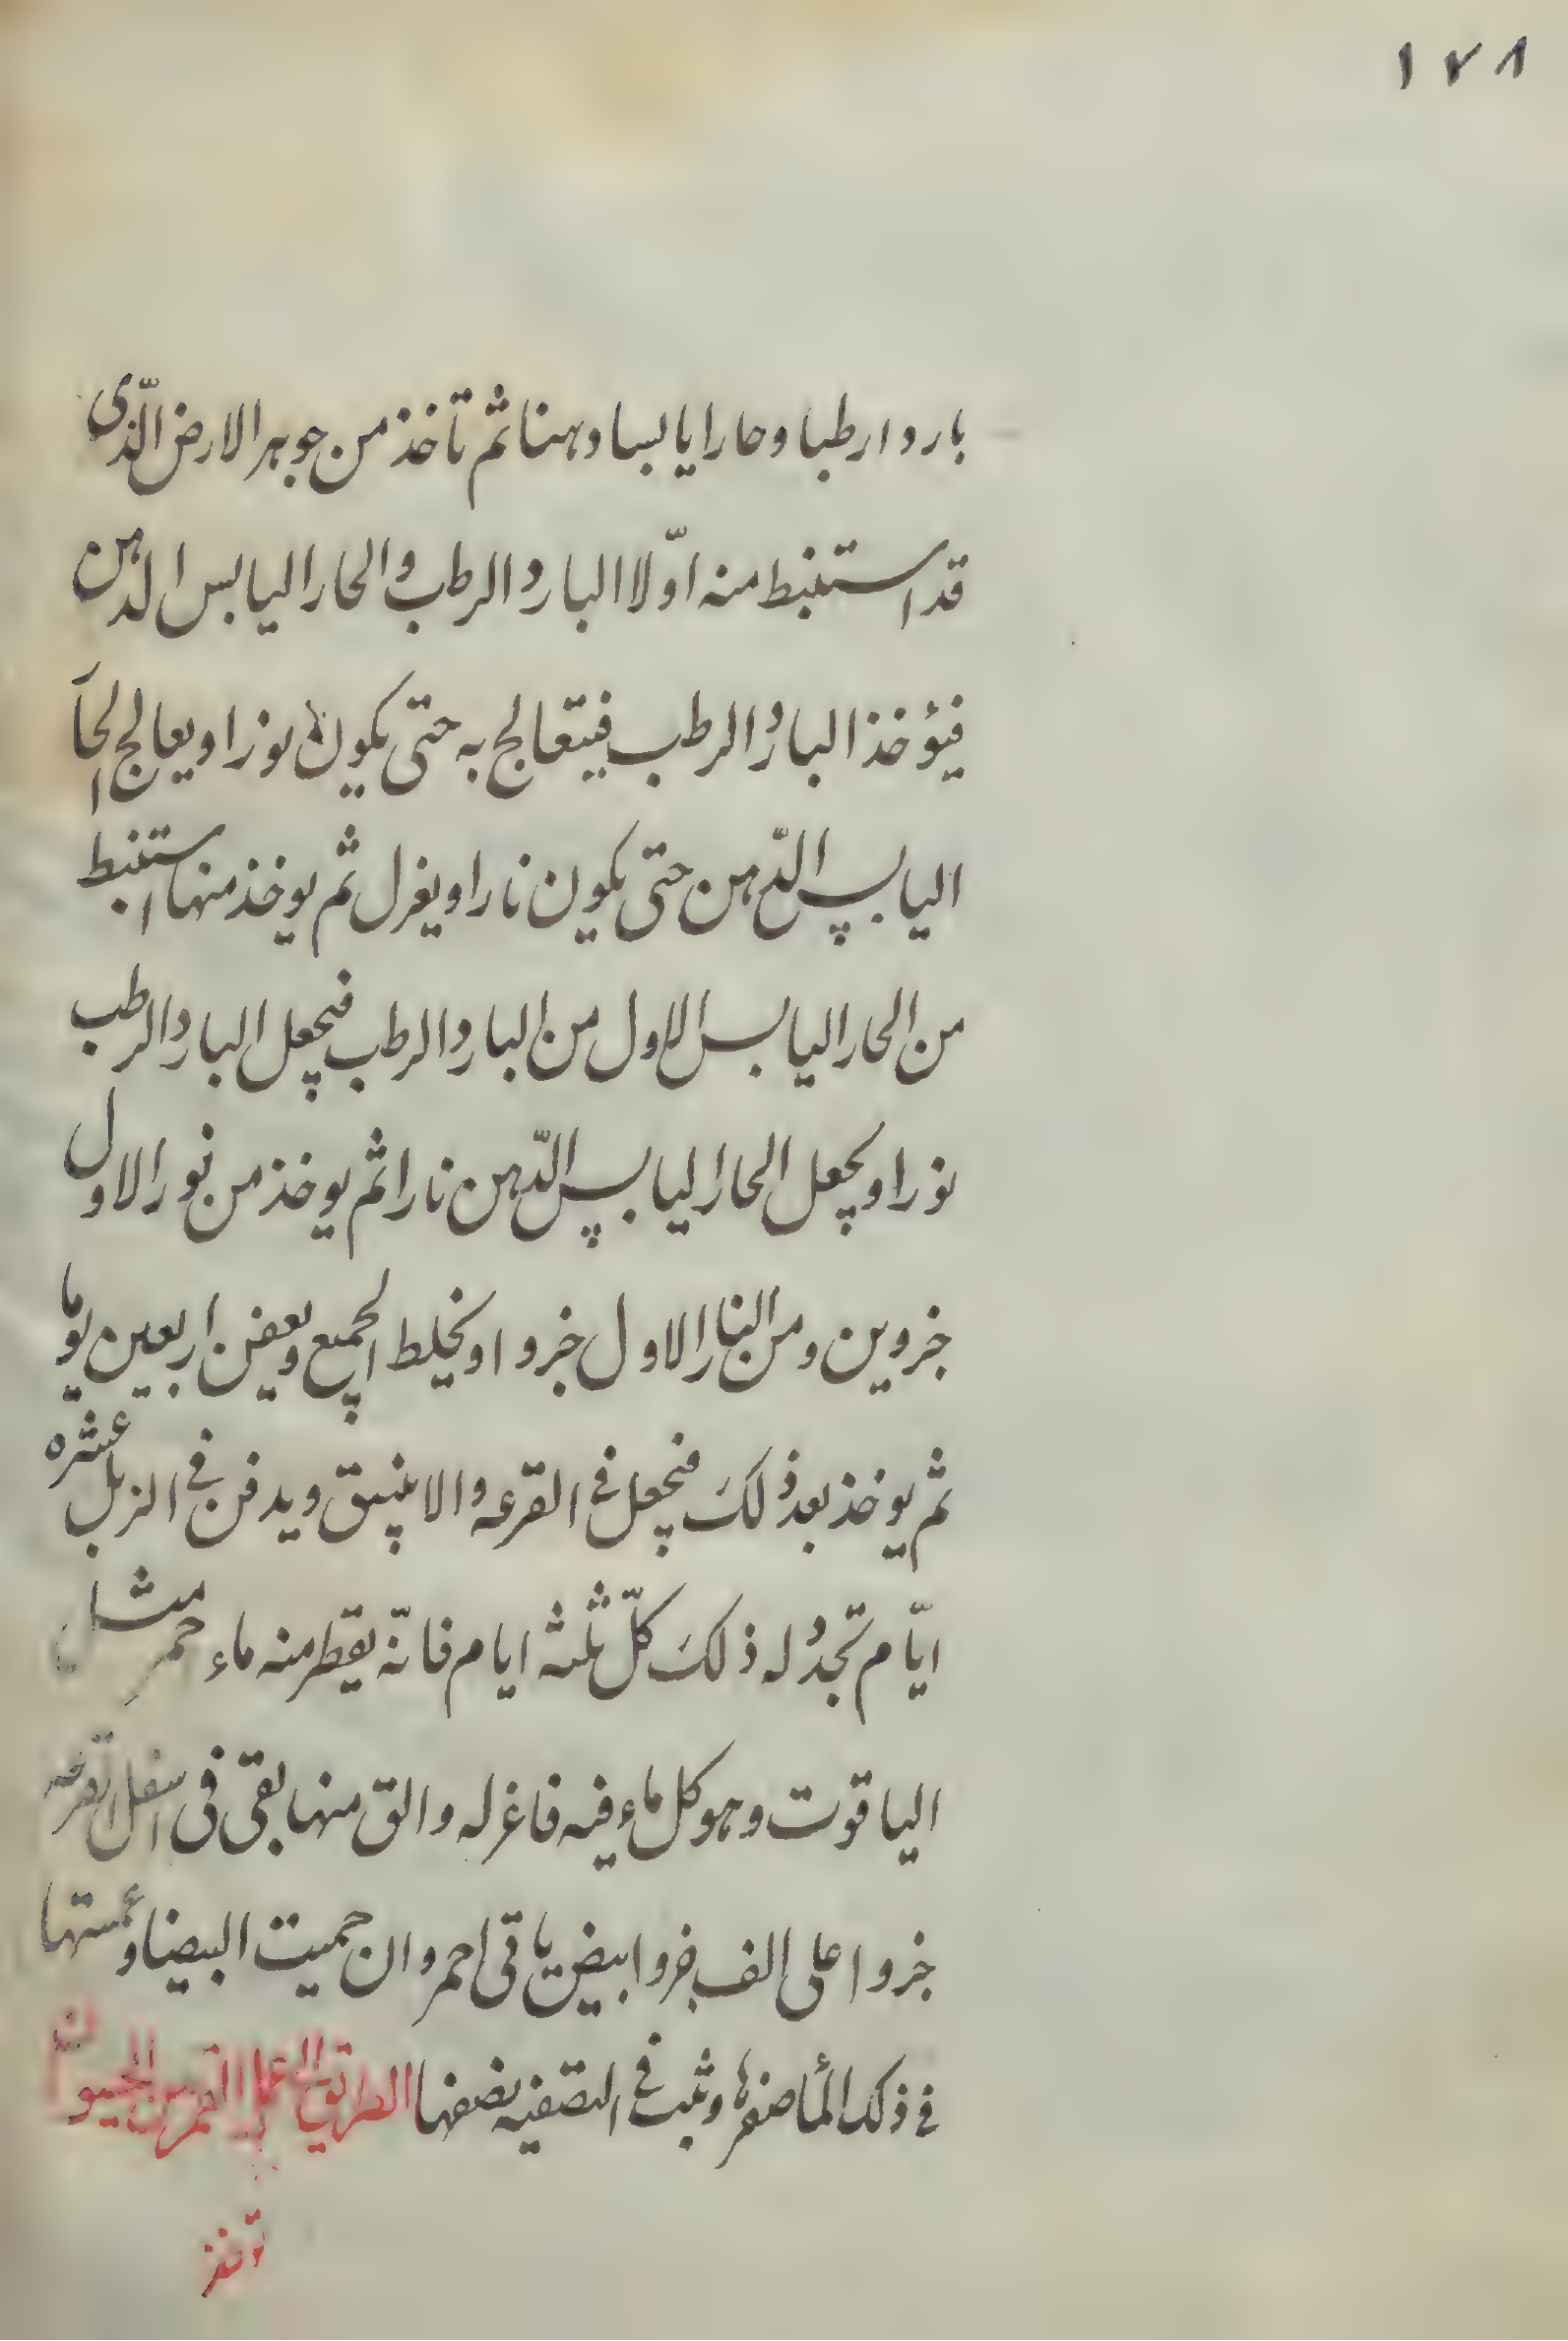 ١٧٨
باردا رطبا وحارا يابسا دهنا ثم تأخذ من جوهر الارض الّذى
قد استنبط منه اوّلا البارد الرطب والحار اليابس الدهن
فيؤخذ البارد الرطب فيتعالج به حتى يكون نورا ويعالج الحا
اليابس الدّهن حتى يكون نارا ويغزل ثم يوخذ منها استنبط
من الحار اليابس الاول من البارد الرطب فيجعل البارد الرطب
نورا ويجعل الحار اليابس الدّهن نارا ثم يوخذ من نور الاول
خروين ومن النار الاول خروا ويخلط الجميع ويعفن اربعين يوما
ثم يوخذ بعد ذلك فيجعل في القرعه والانبيق ويدفن في الزبل عشره
ايّام تجدد له ذلك كلّ ثلثه ايام فانّه يقطر منه ماء حمر مثل
الياقوت وهو كل ماء فيه فاغزله والق منها بقى فى اسفل القرعه
خروا على الف خروا ابيض باقى احمر وان حميت البيضا وغمستها
في ذلك الما صفرها وثبت في التصفيه نصفها الطريق العمل القمر من الحيوان